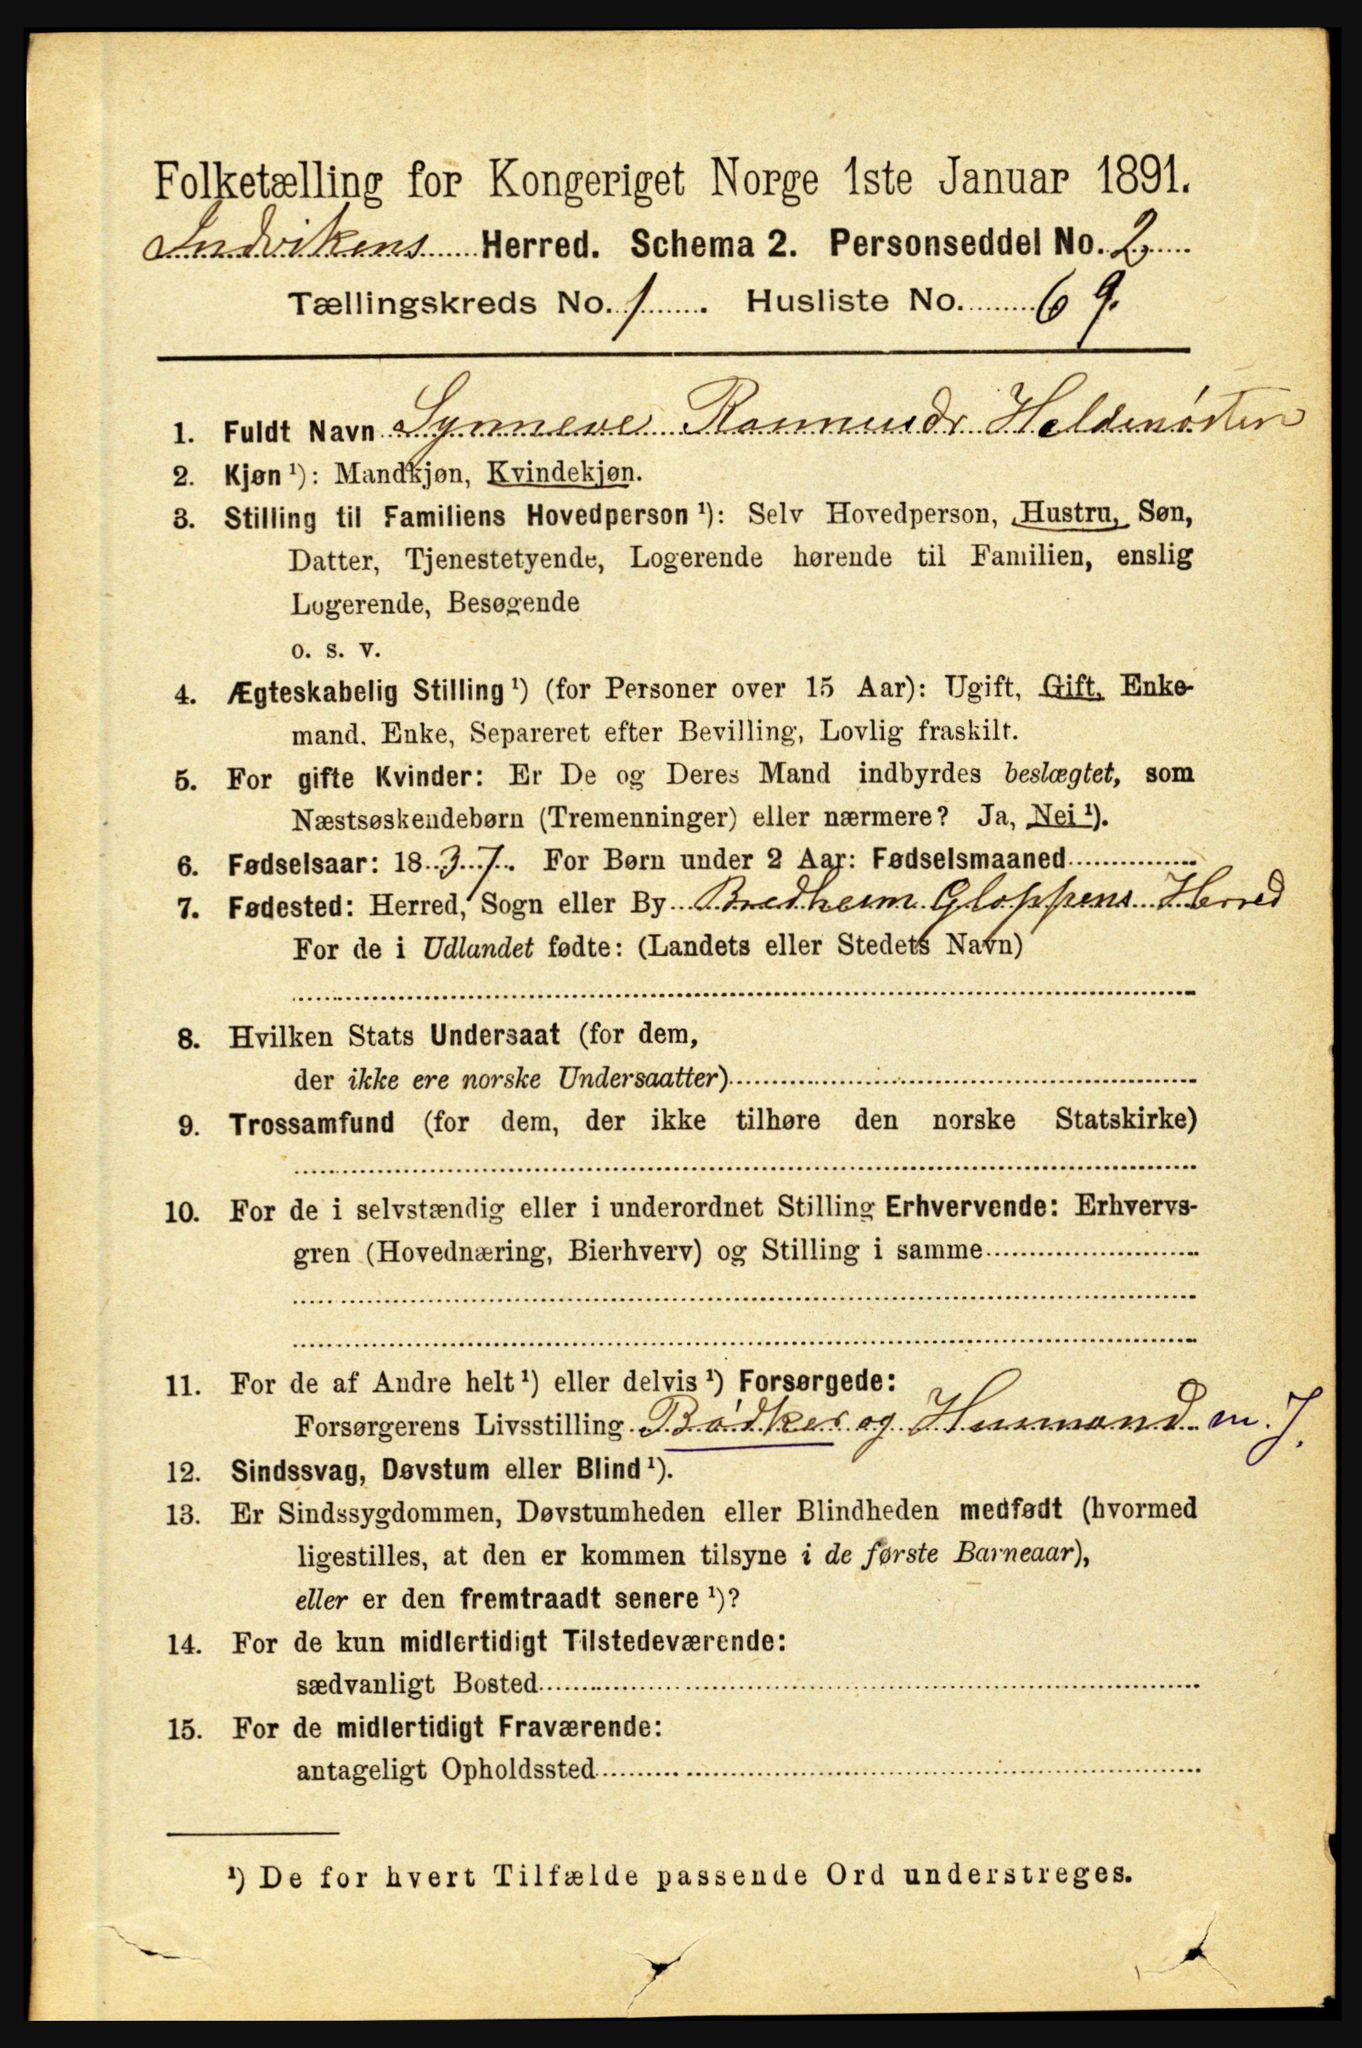 Folketælling for Kongeriget Norge 1ste Januar 1891.
Indvikens Herred. Schema 2. Personseddel No. 2
Tællingskreds No. 1. Husliste No. 69.
1. Fuldt Navn Synneve Rasmusdr
2. Kjøn ¹): Mandkjøn, Kvindekjøn.
3. Stilling til Familiens Hovedperson ¹): Selv Hovedperson, Hustru, Søn,
Datter, Tjenestetyende, Logerende hørende til Familien, enslig
Logerende, Besøgende
o. s. v.
4. Ægteskabelig Stilling ¹) (for Personer over 15 Aar): Ugift, Gift, Enke-
mand, Enke, Separeret efter Bevilling, Lovlig fraskilt.
5. For gifte Kvinder: Er De og Deres Mand indbyrdes beslægtet, som
Næstsøskendebørn (Tremenninger) eller nærmere? Ja, Nei ¹).
6. Fødselsaar: 1837. For Børn under 2 Aar: Fødselsmaaned
7. Fødested: Herred, Sogn eller By Bredheim Gloppens Herred
For de i Udlandet fødte: (Landets eller Stedets Navn)
8. Hvilken Stats Undersaat (for dem,
der ikke ere norske Undersaatter)
9. Trossamfund (for dem, der ikke tilhøre den norske Statskirke)
10. For de i selvstændig eller i underordnet Stilling Erhvervende: Erhvervs-
gren (Hovednæring, Bierhverv) og Stilling i samme
11. For de af Andre helt ¹) eller delvis ¹) Forsørgede:
Forsørgerens Livsstilling Bødker og Husmand m. J.
12. Sindssvag, Døvstum eller Blind ¹).
13. Er Sindssygdommen, Døvstumheden eller Blindheden medfødt (hvormed
ligestilles, at den er kommen tilsyne i de første Barneaar),
eller er den fremtraadt senere ¹)?
14. For de kun midlertidigt Tilstedeværende:
sædvanligt Bosted
15. For de midlertidigt Fraværende:
antageligt Opholdssted
¹) De for hvert Tilfælde passende Ord understreges.